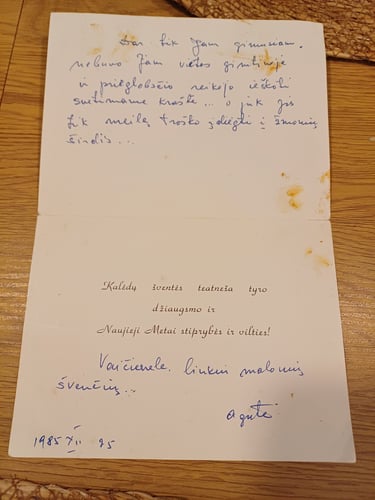 Dar tik Jam gimusiam,
nebuvo Jam vietos gimtinėje
ir prieglobsčio reikėjo ieškoti
svetimame krašte... o juk Jis
tik meilę troško įdiegti į žmonių
širdis...
Kalėdų šventės teatneša tyro
džiaugsmo ir
Naujieji Metai stiprybės ir vilties!
linkiu malonių
švenčių...
Agutė
1985 XII 25